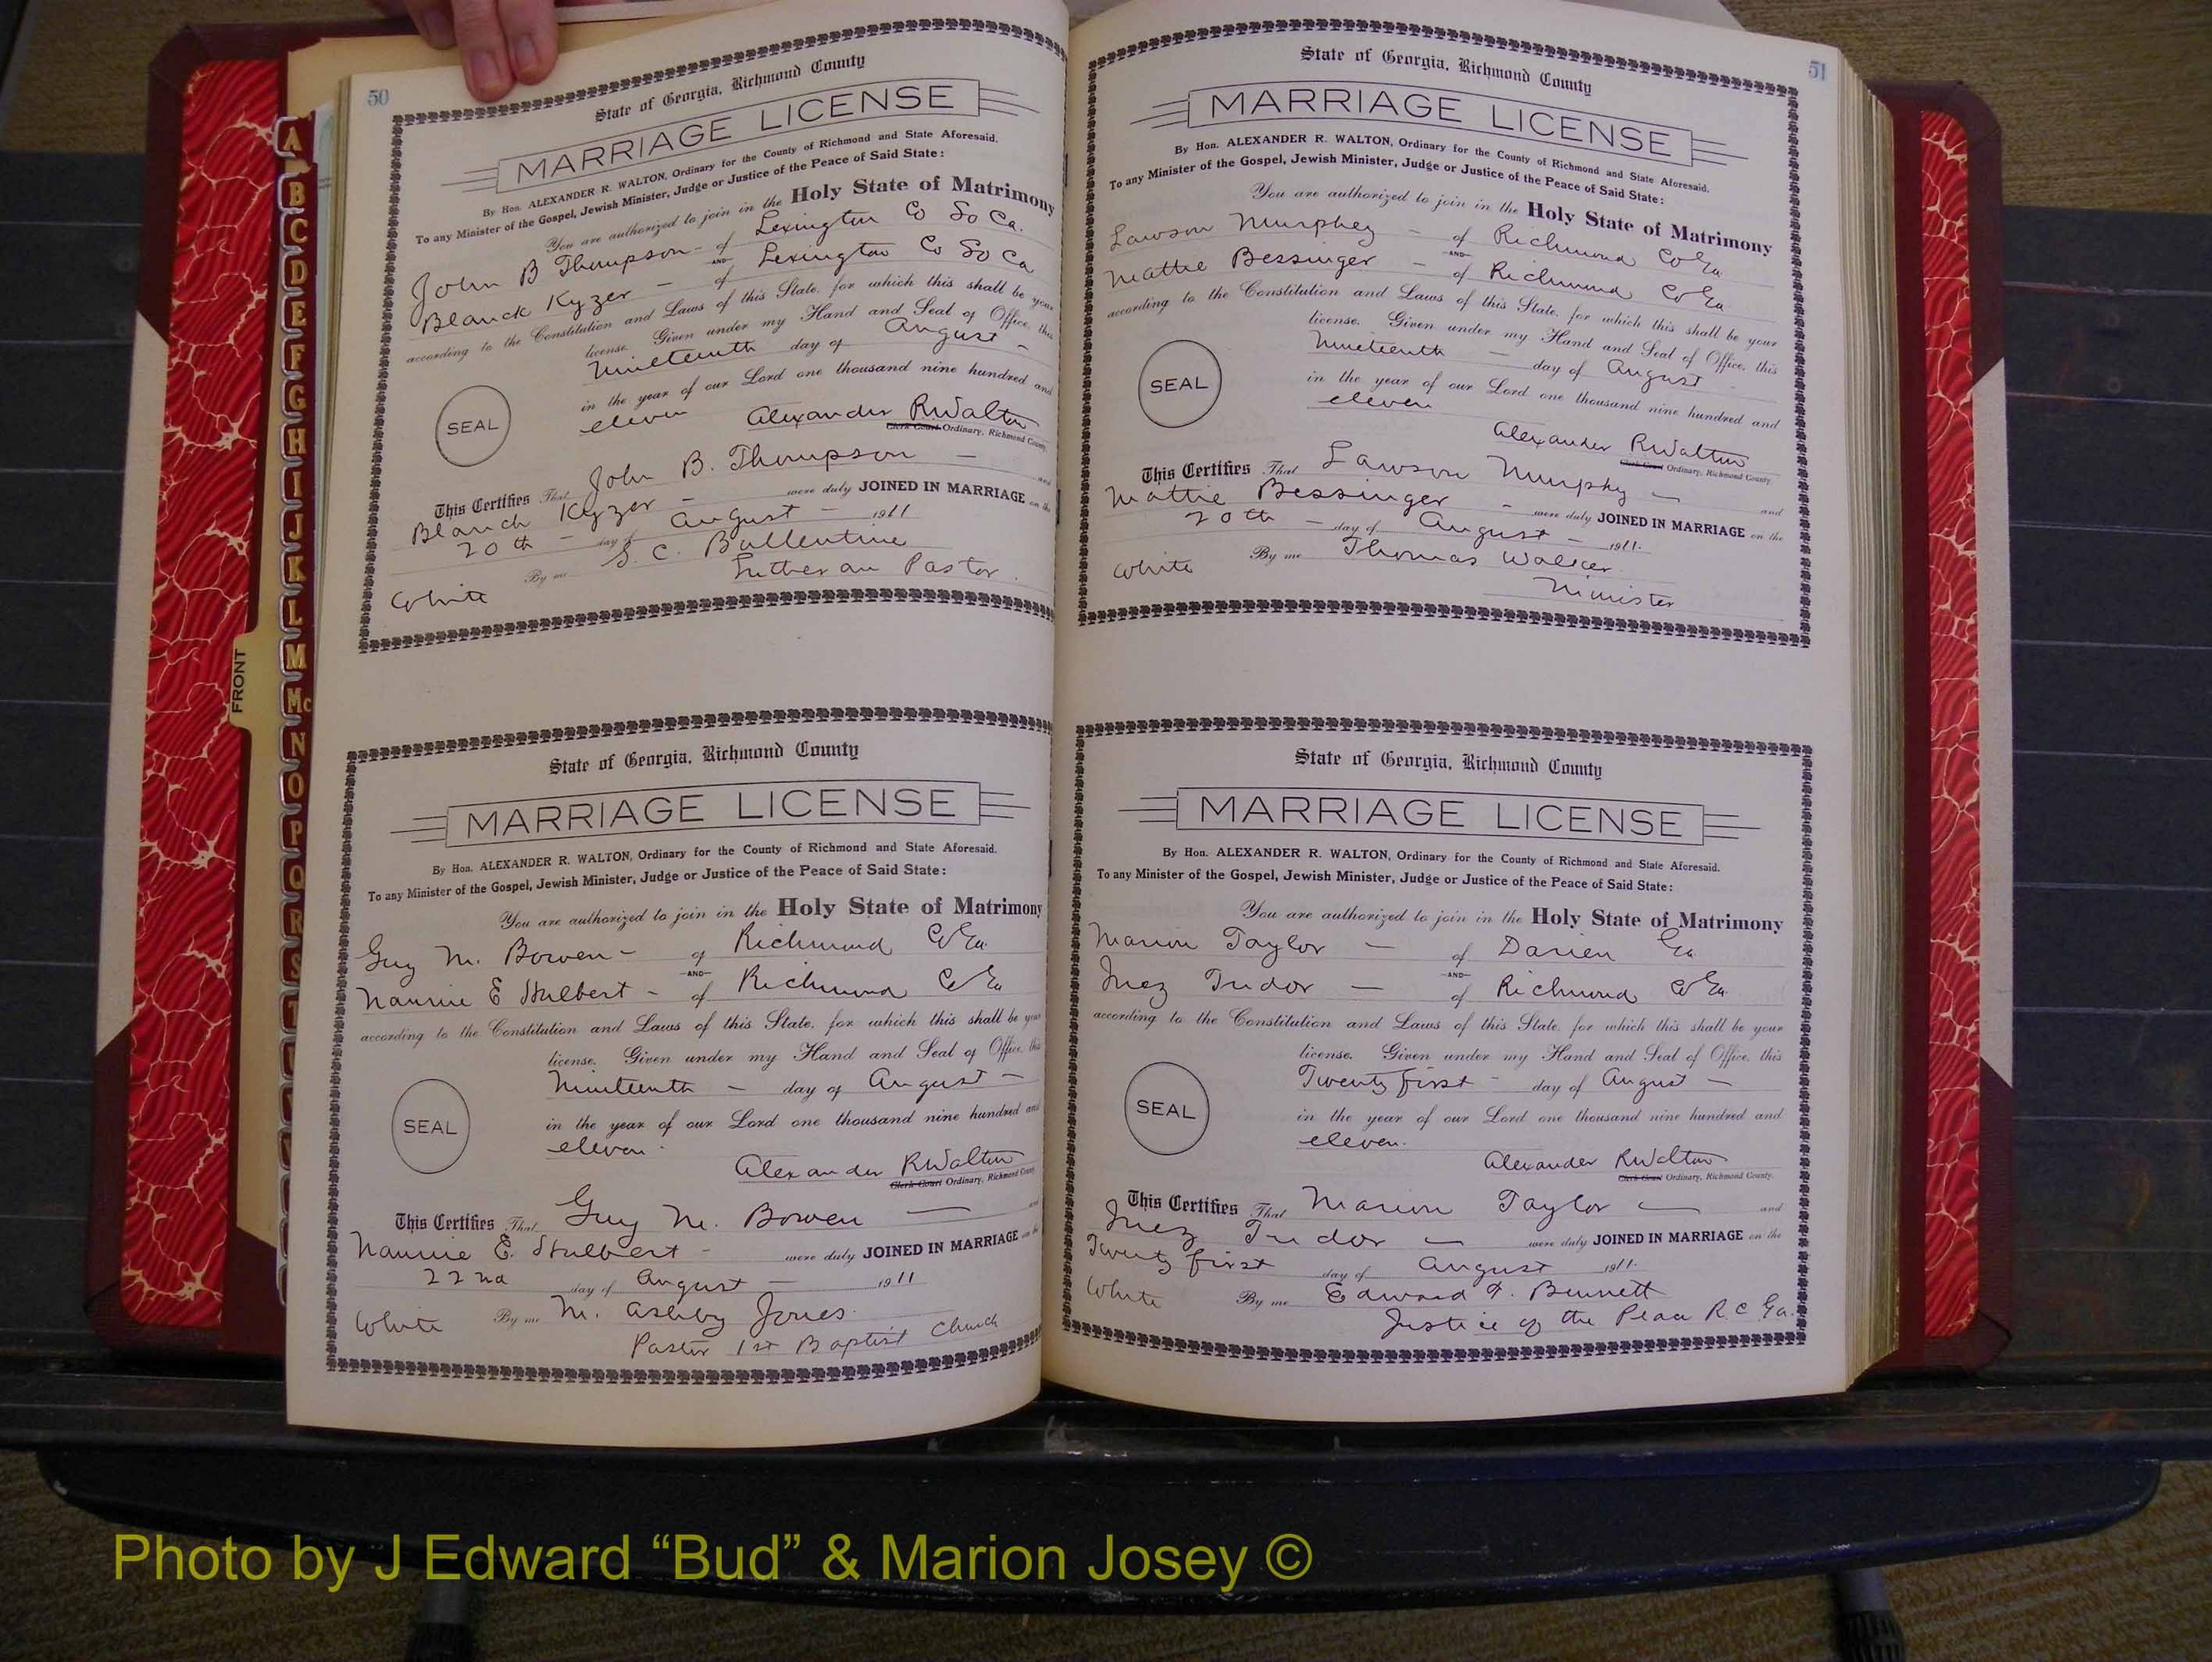 50
State of Georgia, Richmond County
MARRIAGE LICENSE
By Hon. ALEXANDER R. WALTON, Ordinary for the County of Richmond and State Aforesaid.
To any Minister of the Gospel, Jewish Minister, Judge or Justice of the Peace of Said State:
You are authorized to join in the Holy State of Matrimony
John B Thompson - of Lexington Co So Ca.
AND
Blanck Kyzer - of Lexington Co So Ca
according to the Constitution and Laws of this State, for which this shall be your
license. Given under my Hand and Seal of Office, this
Nineteenth day of August -
in the year of our Lord one thousand nine hundred and
eleven Alexander R Walton
Clerk Court Ordinary, Richmond County
SEAL
This Certifies That John B. Thompson - and
Blanch Kyzer - were duly JOINED IN MARRIAGE on the
20th - day of August - 1911
By me S. C. Ballentine
White Lutheran Pastor
State of Georgia, Richmond County
MARRIAGE LICENSE
By Hon. ALEXANDER R. WALTON, Ordinary for the County of Richmond and State Aforesaid.
To any Minister of the Gospel, Jewish Minister, Judge or Justice of the Peace of Said State:
You are authorized to join in the Holy State of Matrimony
Guy M. Bowen - of Richmond Co Ga
AND
Nannie E Hulbert - of Richmond Co Ga
according to the Constitution and Laws of this State, for which this shall be your
license. Given under my Hand and Seal of Office, this
Nineteenth - day of August -
in the year of our Lord one thousand nine hundred and
eleven.
SEAL
Alexander R Walton
Clerk Court Ordinary, Richmond County
This Certifies That Guy M. Bowen - and
Nannie E. Hulbert - were duly JOINED IN MARRIAGE on the
22nd day of August - 1911
White By me M. Ashby Jones.
Pastor 1st Baptist Church
51
State of Georgia, Richmond County
MARRIAGE LICENSE
By Hon. ALEXANDER R. WALTON, Ordinary for the County of Richmond and State Aforesaid.
To any Minister of the Gospel, Jewish Minister, Judge or Justice of the Peace of Said State:
You are authorized to join in the Holy State of Matrimony
Lawson Murphey - of Richmond Co Ga
AND
Mattie Bessinger - of Richmond Co Ga
according to the Constitution and Laws of this State, for which this shall be your
license. Given under my Hand and Seal of Office, this
Nineteenth - day of August
in the year of our Lord one thousand nine hundred and
eleven
SEAL
Alexander R Walton
Clerk Court Ordinary, Richmond County.
This Certifies That Lawson Murphy - and
Mattie Bessinger - were duly JOINED IN MARRIAGE on the
20th - day of August - 1911.
White By me Thomas Walker
Minister
State of Georgia, Richmond County
MARRIAGE LICENSE
By Hon. ALEXANDER R. WALTON, Ordinary for the County of Richmond and State Aforesaid.
To any Minister of the Gospel, Jewish Minister, Judge or Justice of the Peace of Said State:
You are authorized to join in the Holy State of Matrimony
Marion Taylor - of Darien Ga
AND
Inez Tudor - of Richmond Co Ga
according to the Constitution and Laws of this State, for which this shall be your
license. Given under my Hand and Seal of Office, this
Twenty first - day of August -
in the year of our Lord one thousand nine hundred and
eleven.
SEAL
Alexander R Walton
Clerk Court Ordinary, Richmond County.
This Certifies That Marion Taylor - and
Inez Tudor - were duly JOINED IN MARRIAGE on the
Twenty first day of August 1911.
White By me Edward F. Bennett
Justice of the Peace R.C Ga.
FRONT
A
B
C
D
E
F
G
H
I
J
K
L
M
Mc
N
O
P
Q
R
S
T
Photo by J Edward “Bud” & Marion Josey ©